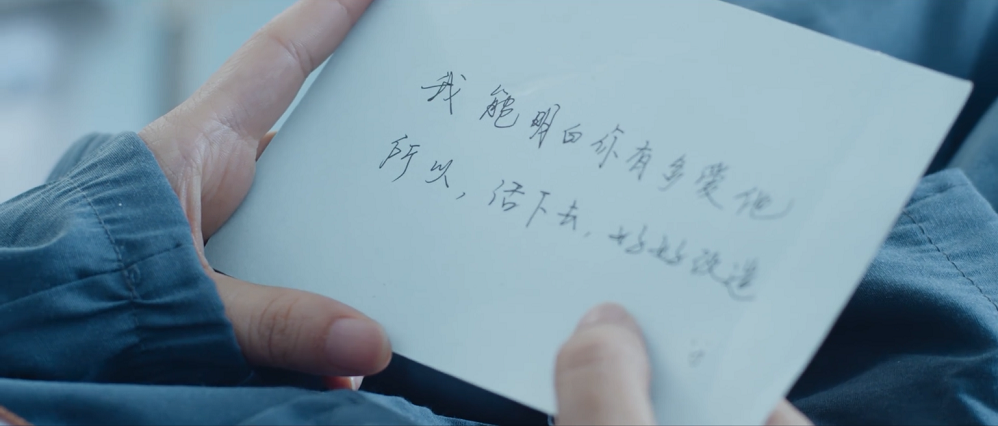 我能明白你有多爱他
所以，活下去，好好改造